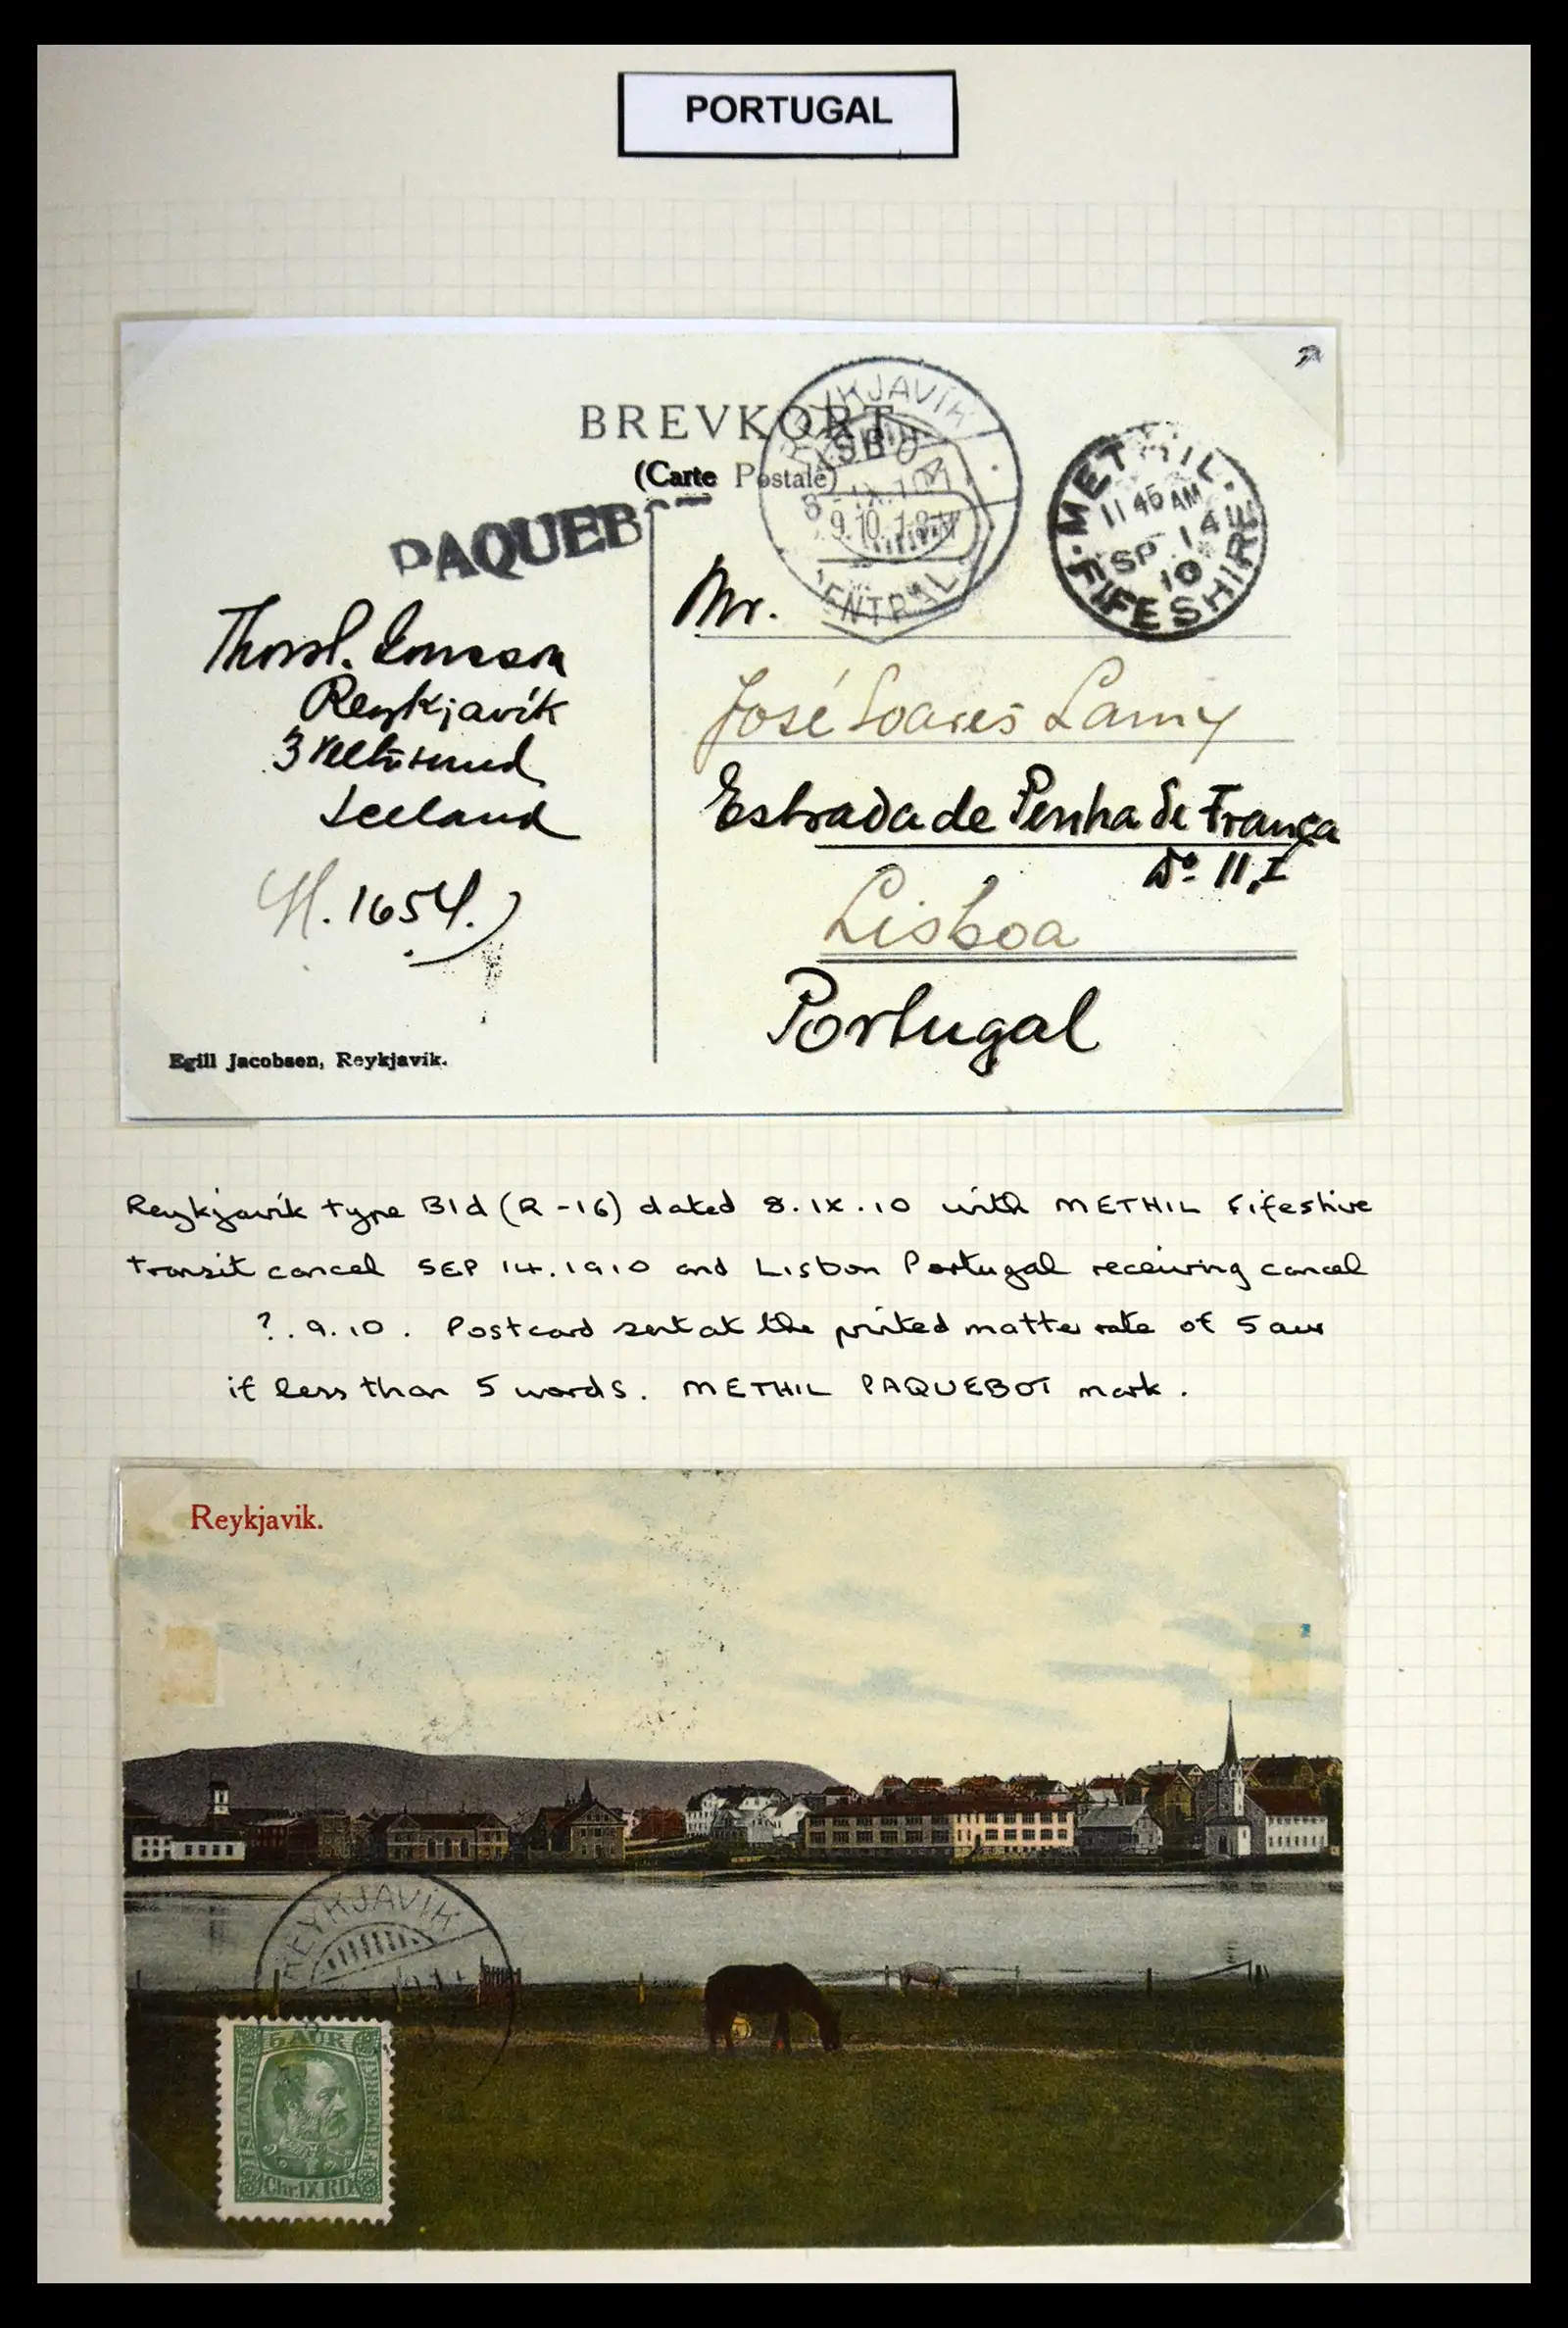 PORTUGAL
BREVKORT
(Carte Postale)
PAQUEB
REYKJAVIK
8 - IX. 10
9.10
CENTRAL
METHIL.
11 45 AM
SP 14
10
FIFESHIRE
Mr.
José Soares Lamy
Estrada de Penha de França
Nº 11, I
Lisboa
Portugal
Reykjavík
3
Iceland
1654.
Egill Jacobsen, Reykjavik.
Reykjavik type B1d (R-16) dated 8.IX.10 with METHIL Fifeshire
transit cancel SEP 14.1910 and Lisbon Portugal receiving cancel
?.9.10. Postcard sent at the printed matter rate of 5 aur
if less than 5 words. METHIL PAQUEBOT mark.
Reykjavik.
REYKJAVIK
5 AUR
ISLAND
FRIMERKI
Chr.IX.RD